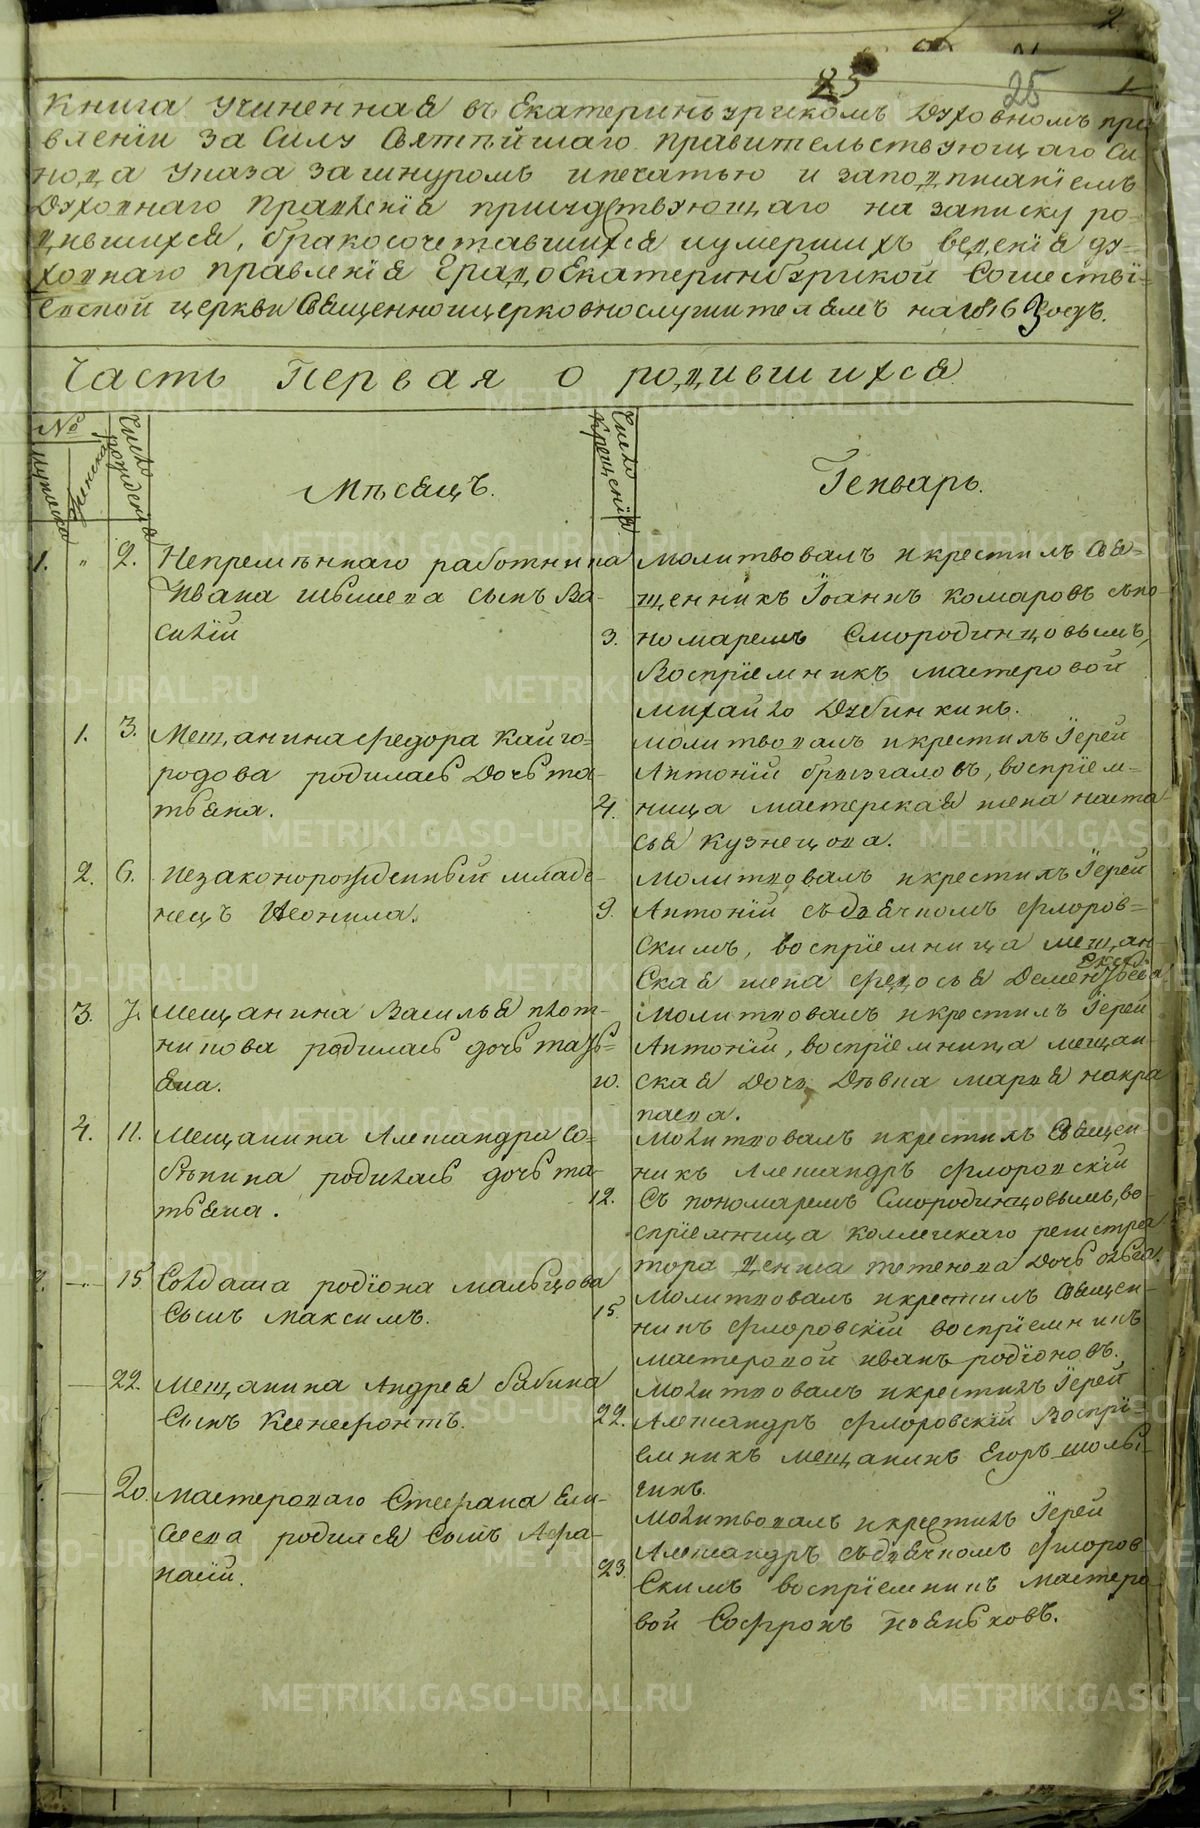 2
25
25
1
Книга учиненная въ Екатеринбургскомъ Духовномъ пра
вленіи за силу Святѣйшаго правительствующаго Си
нода указа за шнуромъ ипечатью и заподписаніемъ
Духовнаго правленія присудствующаго на записку ро-
дившихся, бракосочетавшихся иумершихъ веденія ду-
ховнаго правленія Градоекатеринбургской Сошестві-
евской церкви Священноицерковнослужителямъ на 1816 годъ.
Часть Первая о родившихся
№
мужеска
женска
Число рожденія
Мѣсяцъ.
Число крещенія
Генварь.
1. " 2. Непремѣннаго работника
Ивана сынъ Ва-
силій
3.
молитвовалъ икрестилъ Свя-
щенникъ Іоаннъ Комаровъ съпо-
номаремъ Смородинцовымъ,
Воспріемникъ мастеровой
михайло Дубинкинъ.
1. 3. Мещанина федора Кайго-
родова родилась Дочь та-
тьяна.
4.
молитвовалъ икрестилъ Іерей
Антоній брызгаловъ, воспріем-
ница мастерская жена наста-
сья Кузнецова.
2. 6. незаконорожденный младе-
нецъ Неонила.
9.
молитвовалъ икрестилъ Іерей
Антоній съдьячкомъ флоров-
скимъ, воспріемница мещан-
ская жена федосья Дементьева
3. 7. мещанина Василья плот-
никова родилась дочь тать-
яна.
10.
молитвовалъ икрестилъ Іерей
Антоній, воспріемница мещан-
ская Дочь Дѣвка марья
4. 11. мещанина Александра Со-
бянина родилась дочь та-
тьяна.
12.
молитвовалъ икрестилъ Священ-
никъ Александръ флоровскій
Съ пономаремъ Смородинцовымъ, во-
спріемница коллежскаго регистра
тора Дочь
— " — 15 Солдата родіона мальцова
сынъ максимъ.
15.
молитвовалъ икрестилъ Священ-
никъ флоровскій воспріемникъ
мастеровой иванъ родіоновъ.
— 22. мещанина Андрея бабина
сынъ Ксенофонтъ.
22.
молитвовалъ икрестилъ Іерей
Александръ флоровскій Воспрі-
емникъ мещанинъ Егоръ
— 20. мастероваго Стефана Ели-
сеева родился сынъ Афа-
насій.
23.
молитвовалъ икрестилъ Іерей
Александръ съдьячкомъ флоров
скимъ воспріемникъ мастеро-
вой Софронъ
METRIKI.GASO-URAL.RU